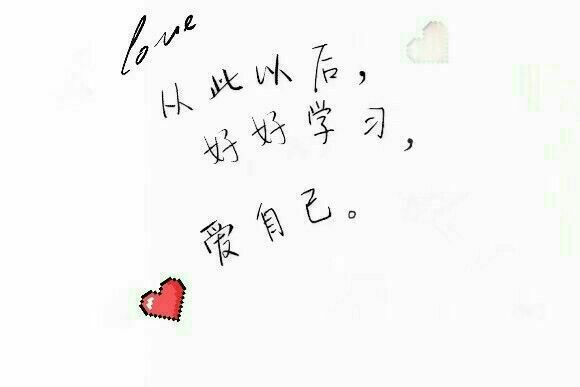 love
从此以后，
好好学习，
爱自己。